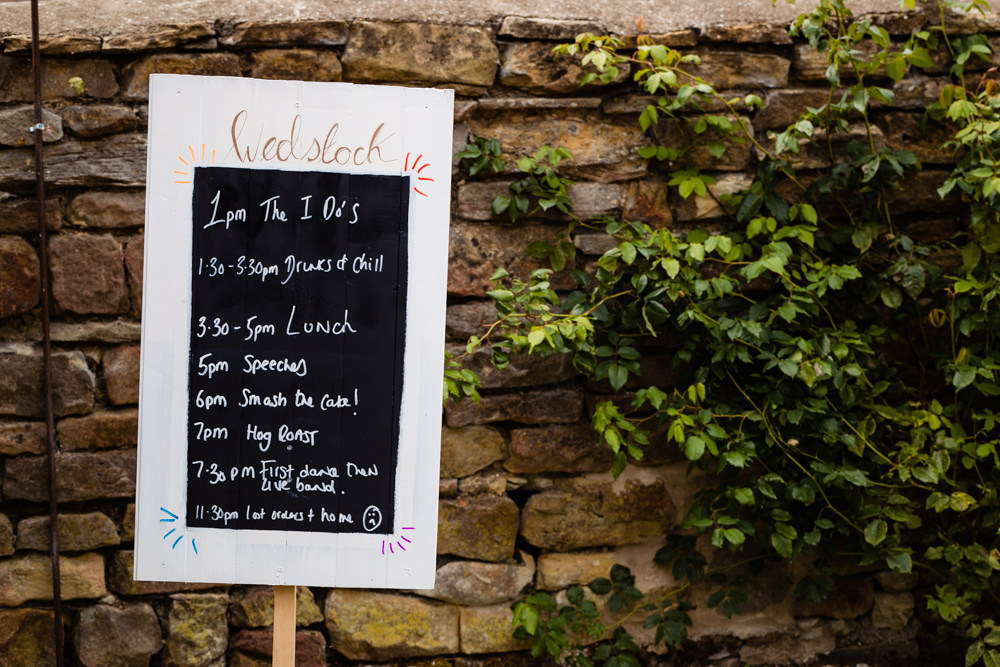 Wedstock
1pm The I Do's
1.30-3.30pm Drinks & Chill
3.30-5pm Lunch
5pm Speeches
6pm Smash the cake!
7pm Hog Roast
7.30pm First dance then
Live band.
11.30pm last orders + home